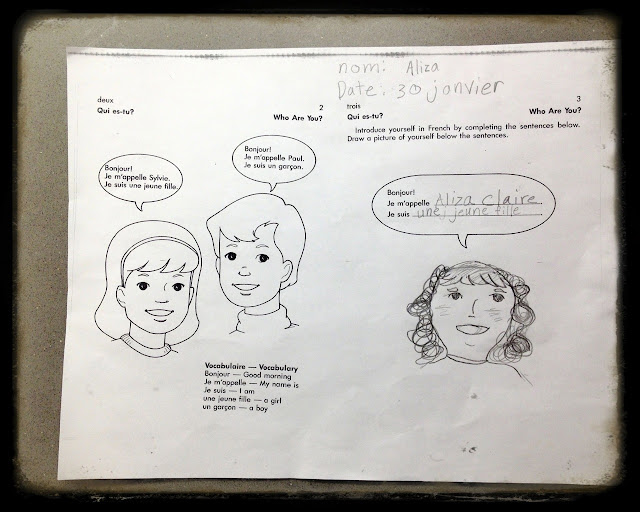 deux
2
Qui es-tu?
Who Are You?
Bonjour!
Je m'appelle Sylvie.
Je suis une jeune fille.
Bonjour!
Je m'appelle Paul.
Je suis un garçon.
Vocabulaire — Vocabulary
Bonjour — Good morning
Je m'appelle — My name is
Je suis — I am
une jeune fille — a girl
un garçon — a boy
nom: Aliza
Date: 30 janvier
trois
3
Qui es-tu?
Who Are You?
Introduce yourself in French by completing the sentences below.
Draw a picture of yourself below the sentences.
Bonjour!
Je m'appelle Aliza Claire
Je suis une jeune fille